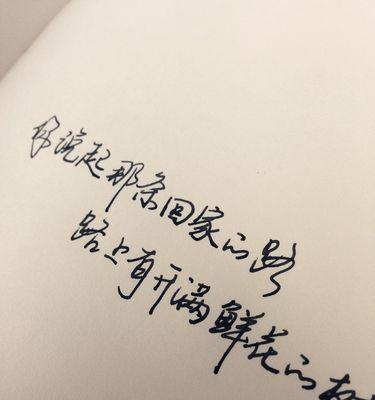 你说起那条回家的路
路上有开满鲜花的